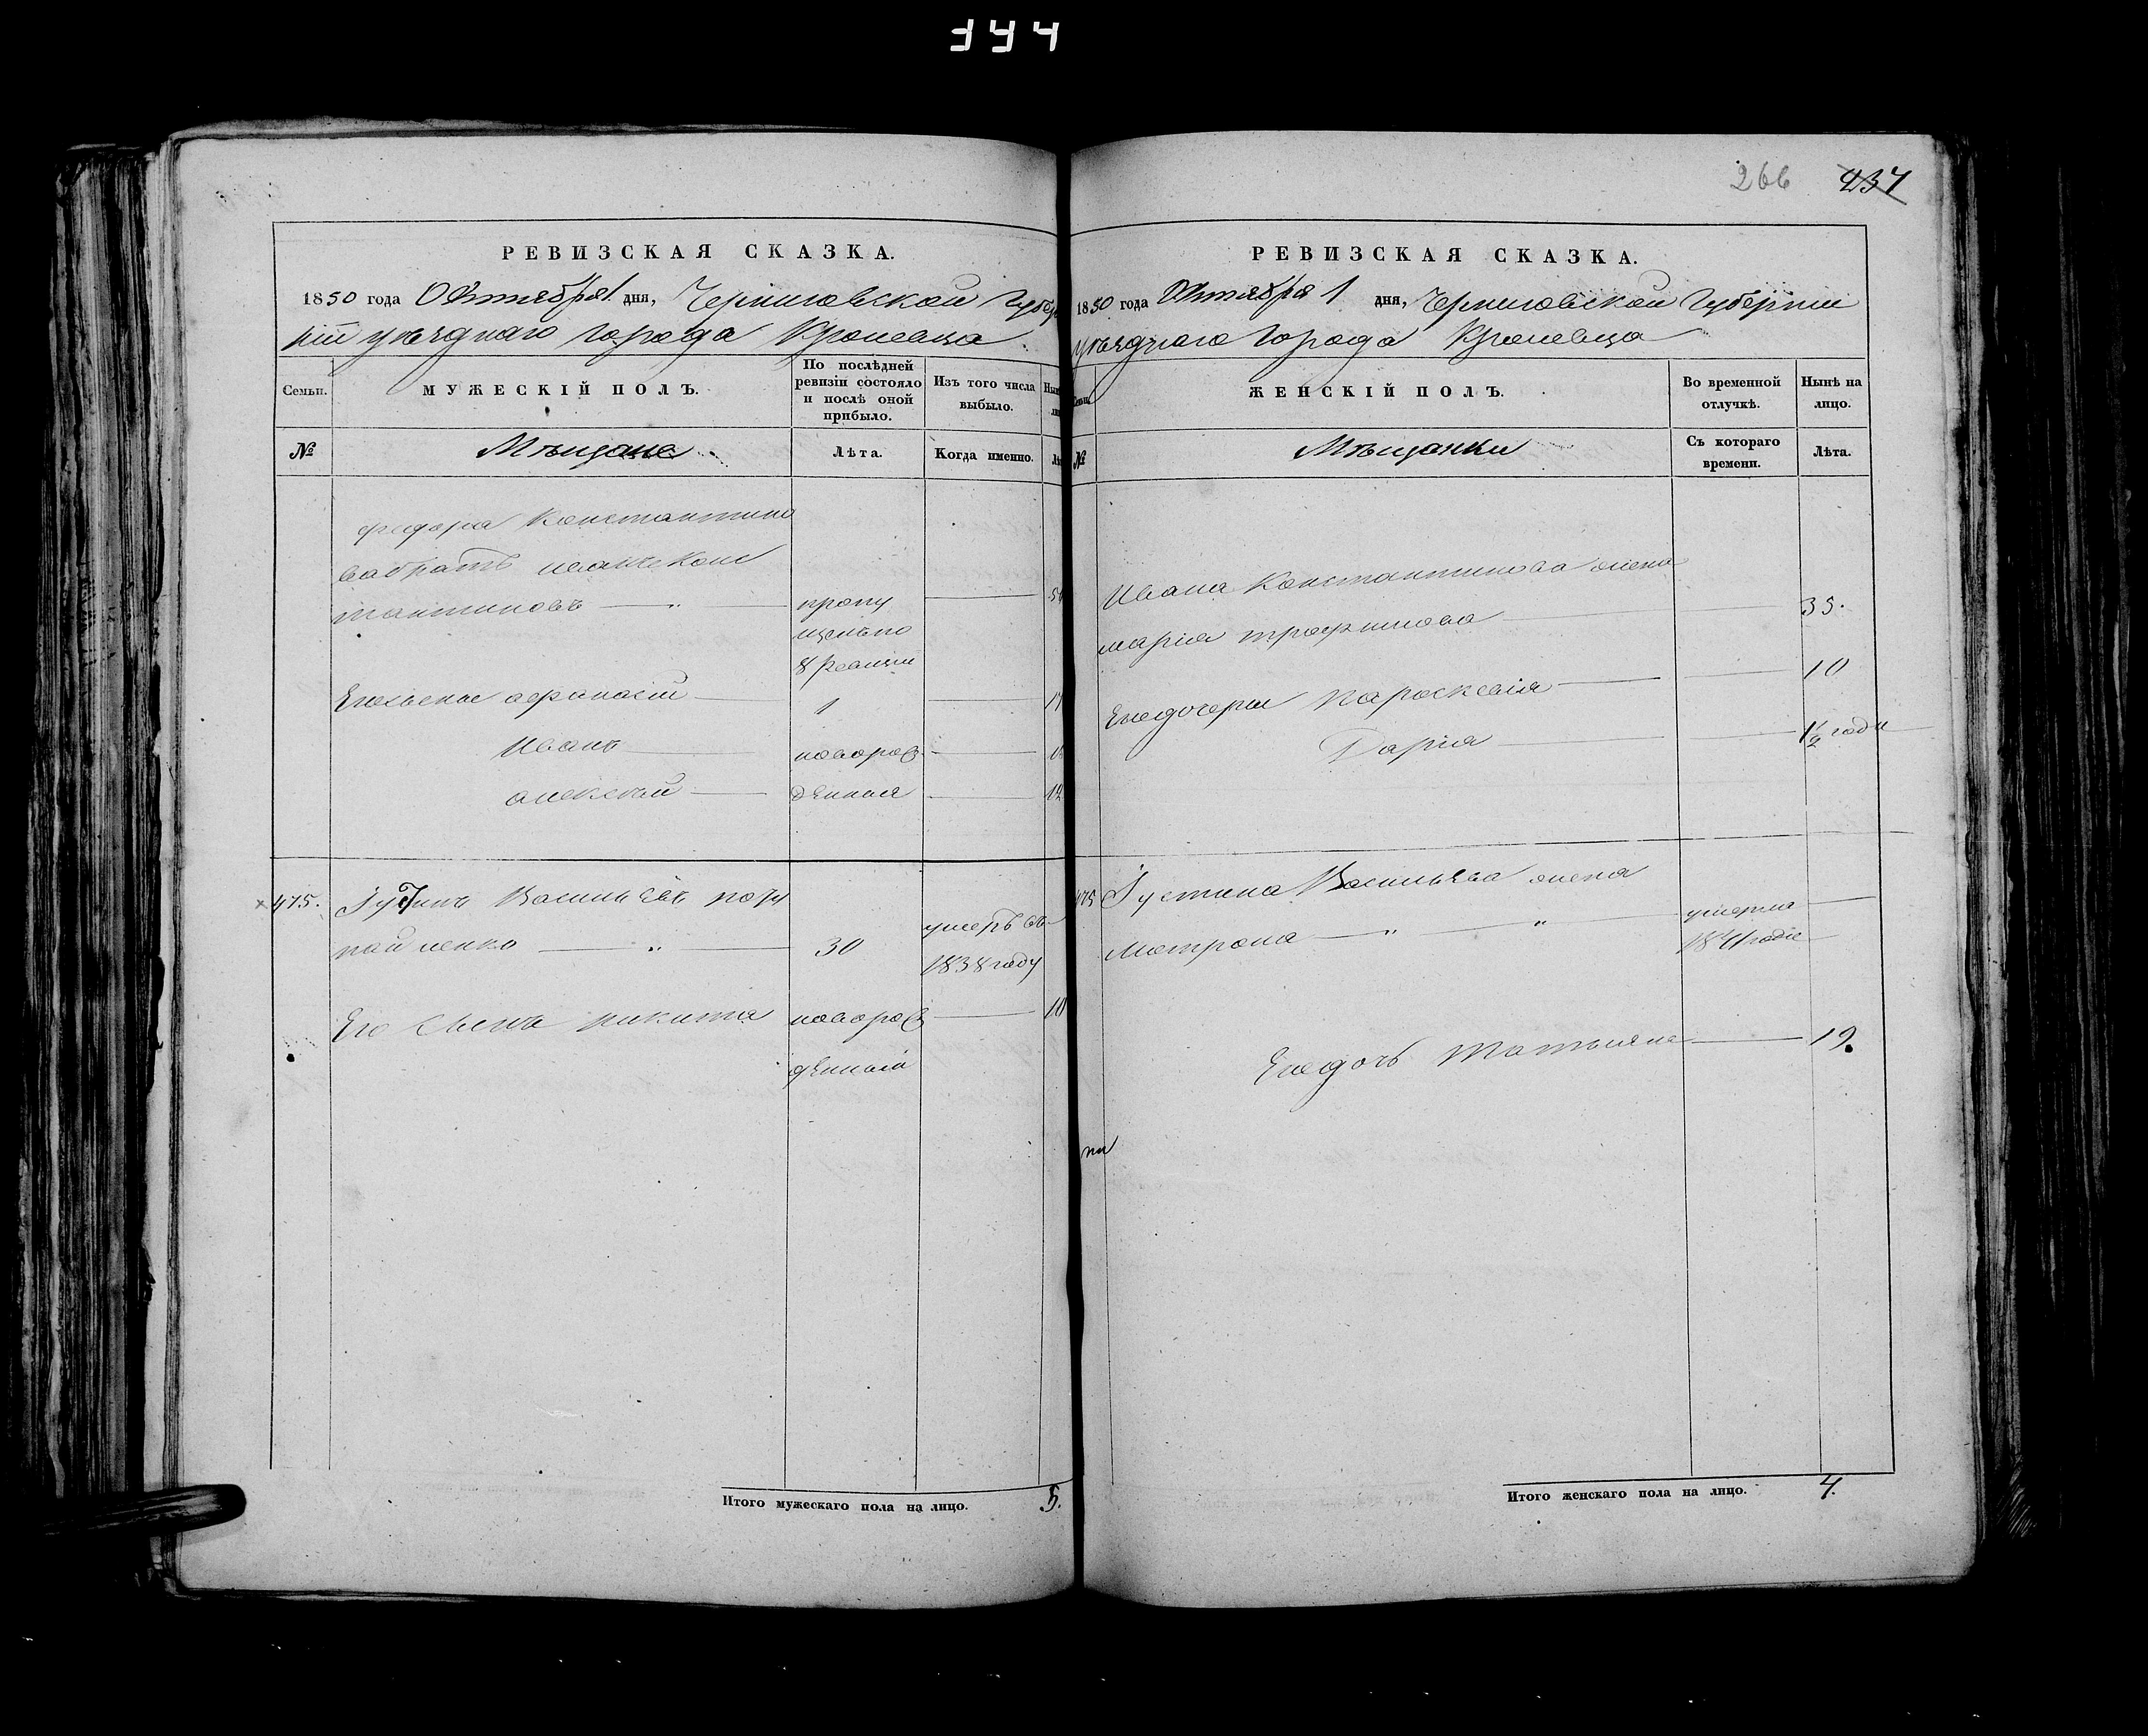 РЕВИЗСКАЯ СКАЗКА.
1850 года Октября 1 дня, Черниговской Губер
ніи уѣзднаго города Кролевца
Семьи.
МУЖЕСКІЙ ПОЛЪ.
По послѣдней ревизіи состояло и послѣ оной прибыло.
Изъ того числа выбыло.
№
Мѣщане
Лѣта.
Когда именно.
Федора Константино
ва братъ Иванъ Конс
тантиновъ — „ — пропу
щенъ по
8 Ревизіи
Его сыновья Афанасій — 1
Иванъ — новорож
Алексѣй — денныя — 12
475. Іустинъ Васильевъ
— „ — 30 умеръ въ
1838 году
Его сынъ Никита новорож — 18
денный
Итого мужескаго пола на лицо. 5.
266 437
РЕВИЗСКАЯ СКАЗКА.
1850 года Октября 1 дня, Черниговской Губерніи
уѣзднаго города Кролевца
ЖЕНСКІЙ ПОЛЪ.
Во временной отлучкѣ.
Нынѣ на лицо.
№
Мѣщанки
Съ котораго времени.
Лѣта.
Ивана Константинова жена
Марія Трофимова — 35.
Его дочери Параскевія — 10
Дарія — 1½ года
475 Іустина Васильева жена
Матрона — „ — „ — умерла
Его дочь Татьяна — 19.
Итого женскаго пола на лицо. 4.